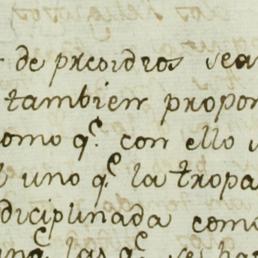 de presidios sea
tambien propon
como q.^e con ello
uno q.^e la tropa
diciplinada como
las q.^e se